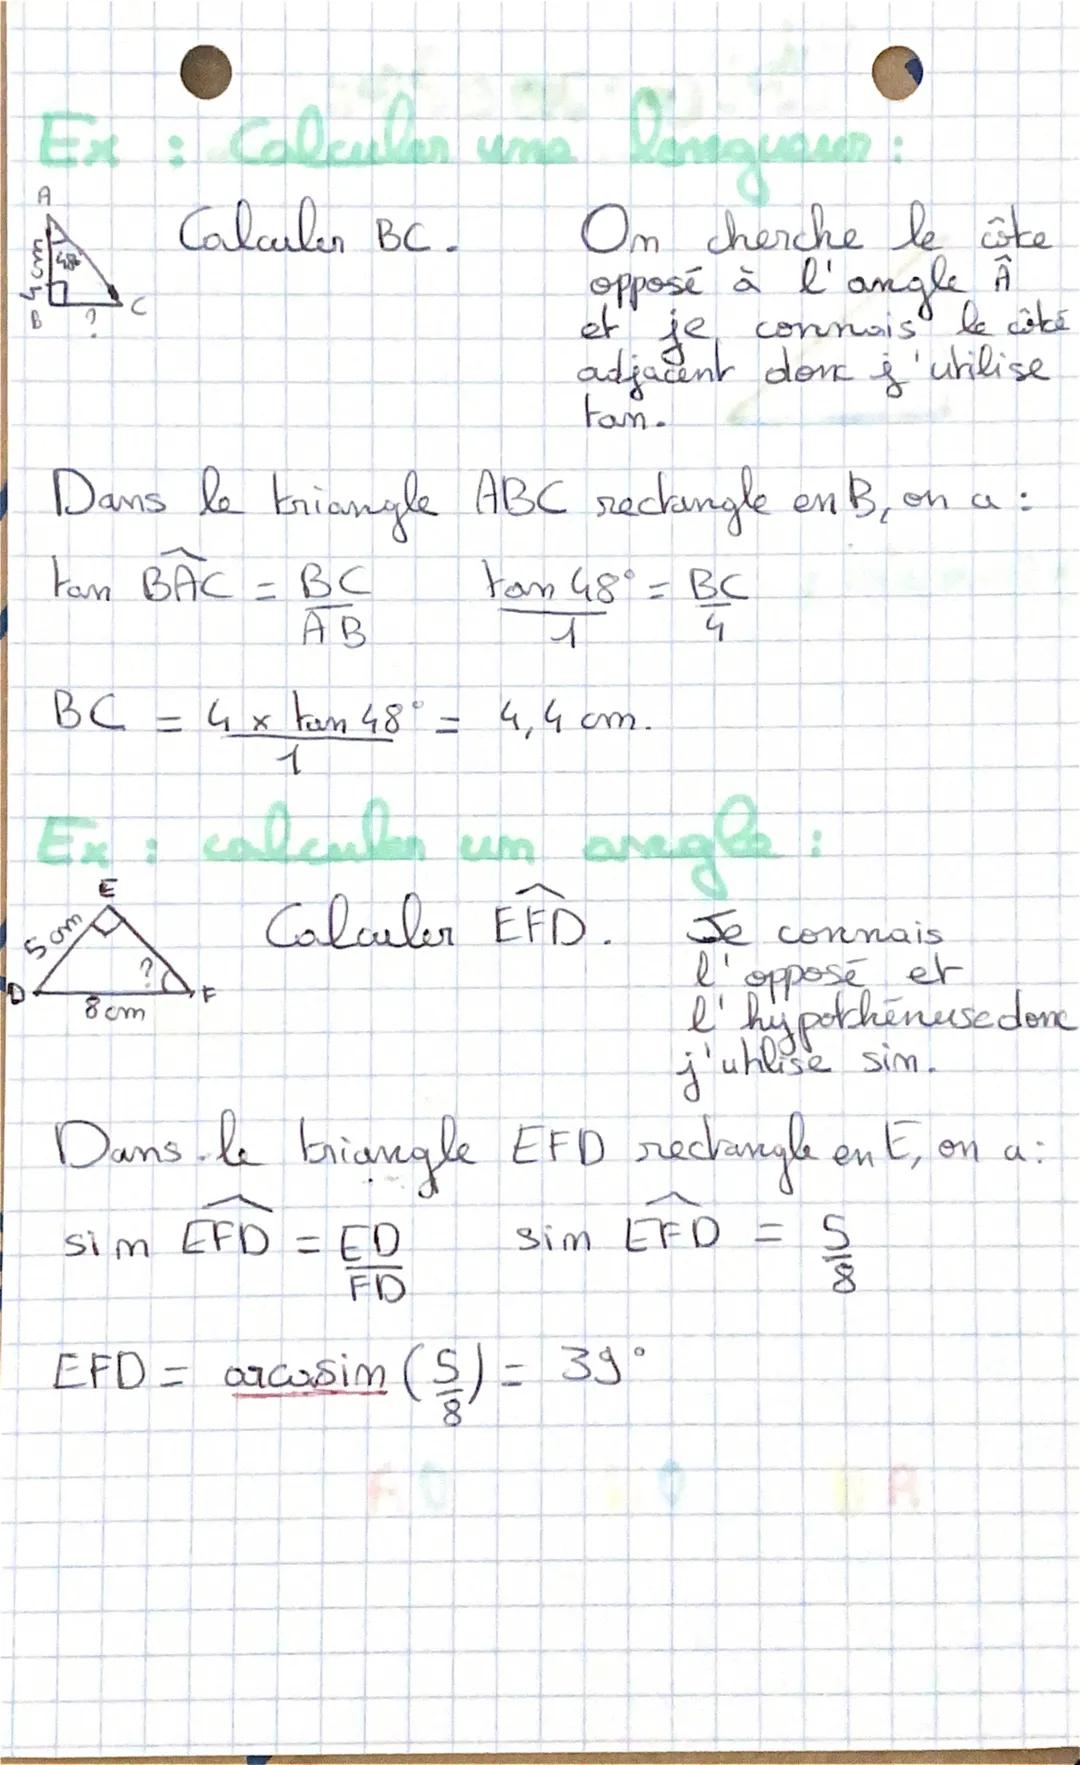 Ex : Calculer une longueur :
A
48°
4 cm
B
?
C
Calculer BC.
On cherche le côté
opposé à l'angle Â
et je connais le côté
adjacent donc j'utilise
tan.
Dans le triangle ABC rectangle en B, on a :
tan BAC = BC/AB tan 48°/1 = BC/4
BC = 4 x tan 48°/1 = 4,4 cm.
Ex : calculer un angle :
E
5 cm
?
D
8 cm
F
Calculer EFD.
Je connais
l'opposé et
l'hypothénuse donc
j'utilise sin.
Dans le triangle EFD rectangle en E, on a :
sin EFD = ED/FD sin EFD = 5/8
EFD = arcosin (5/8) = 39°